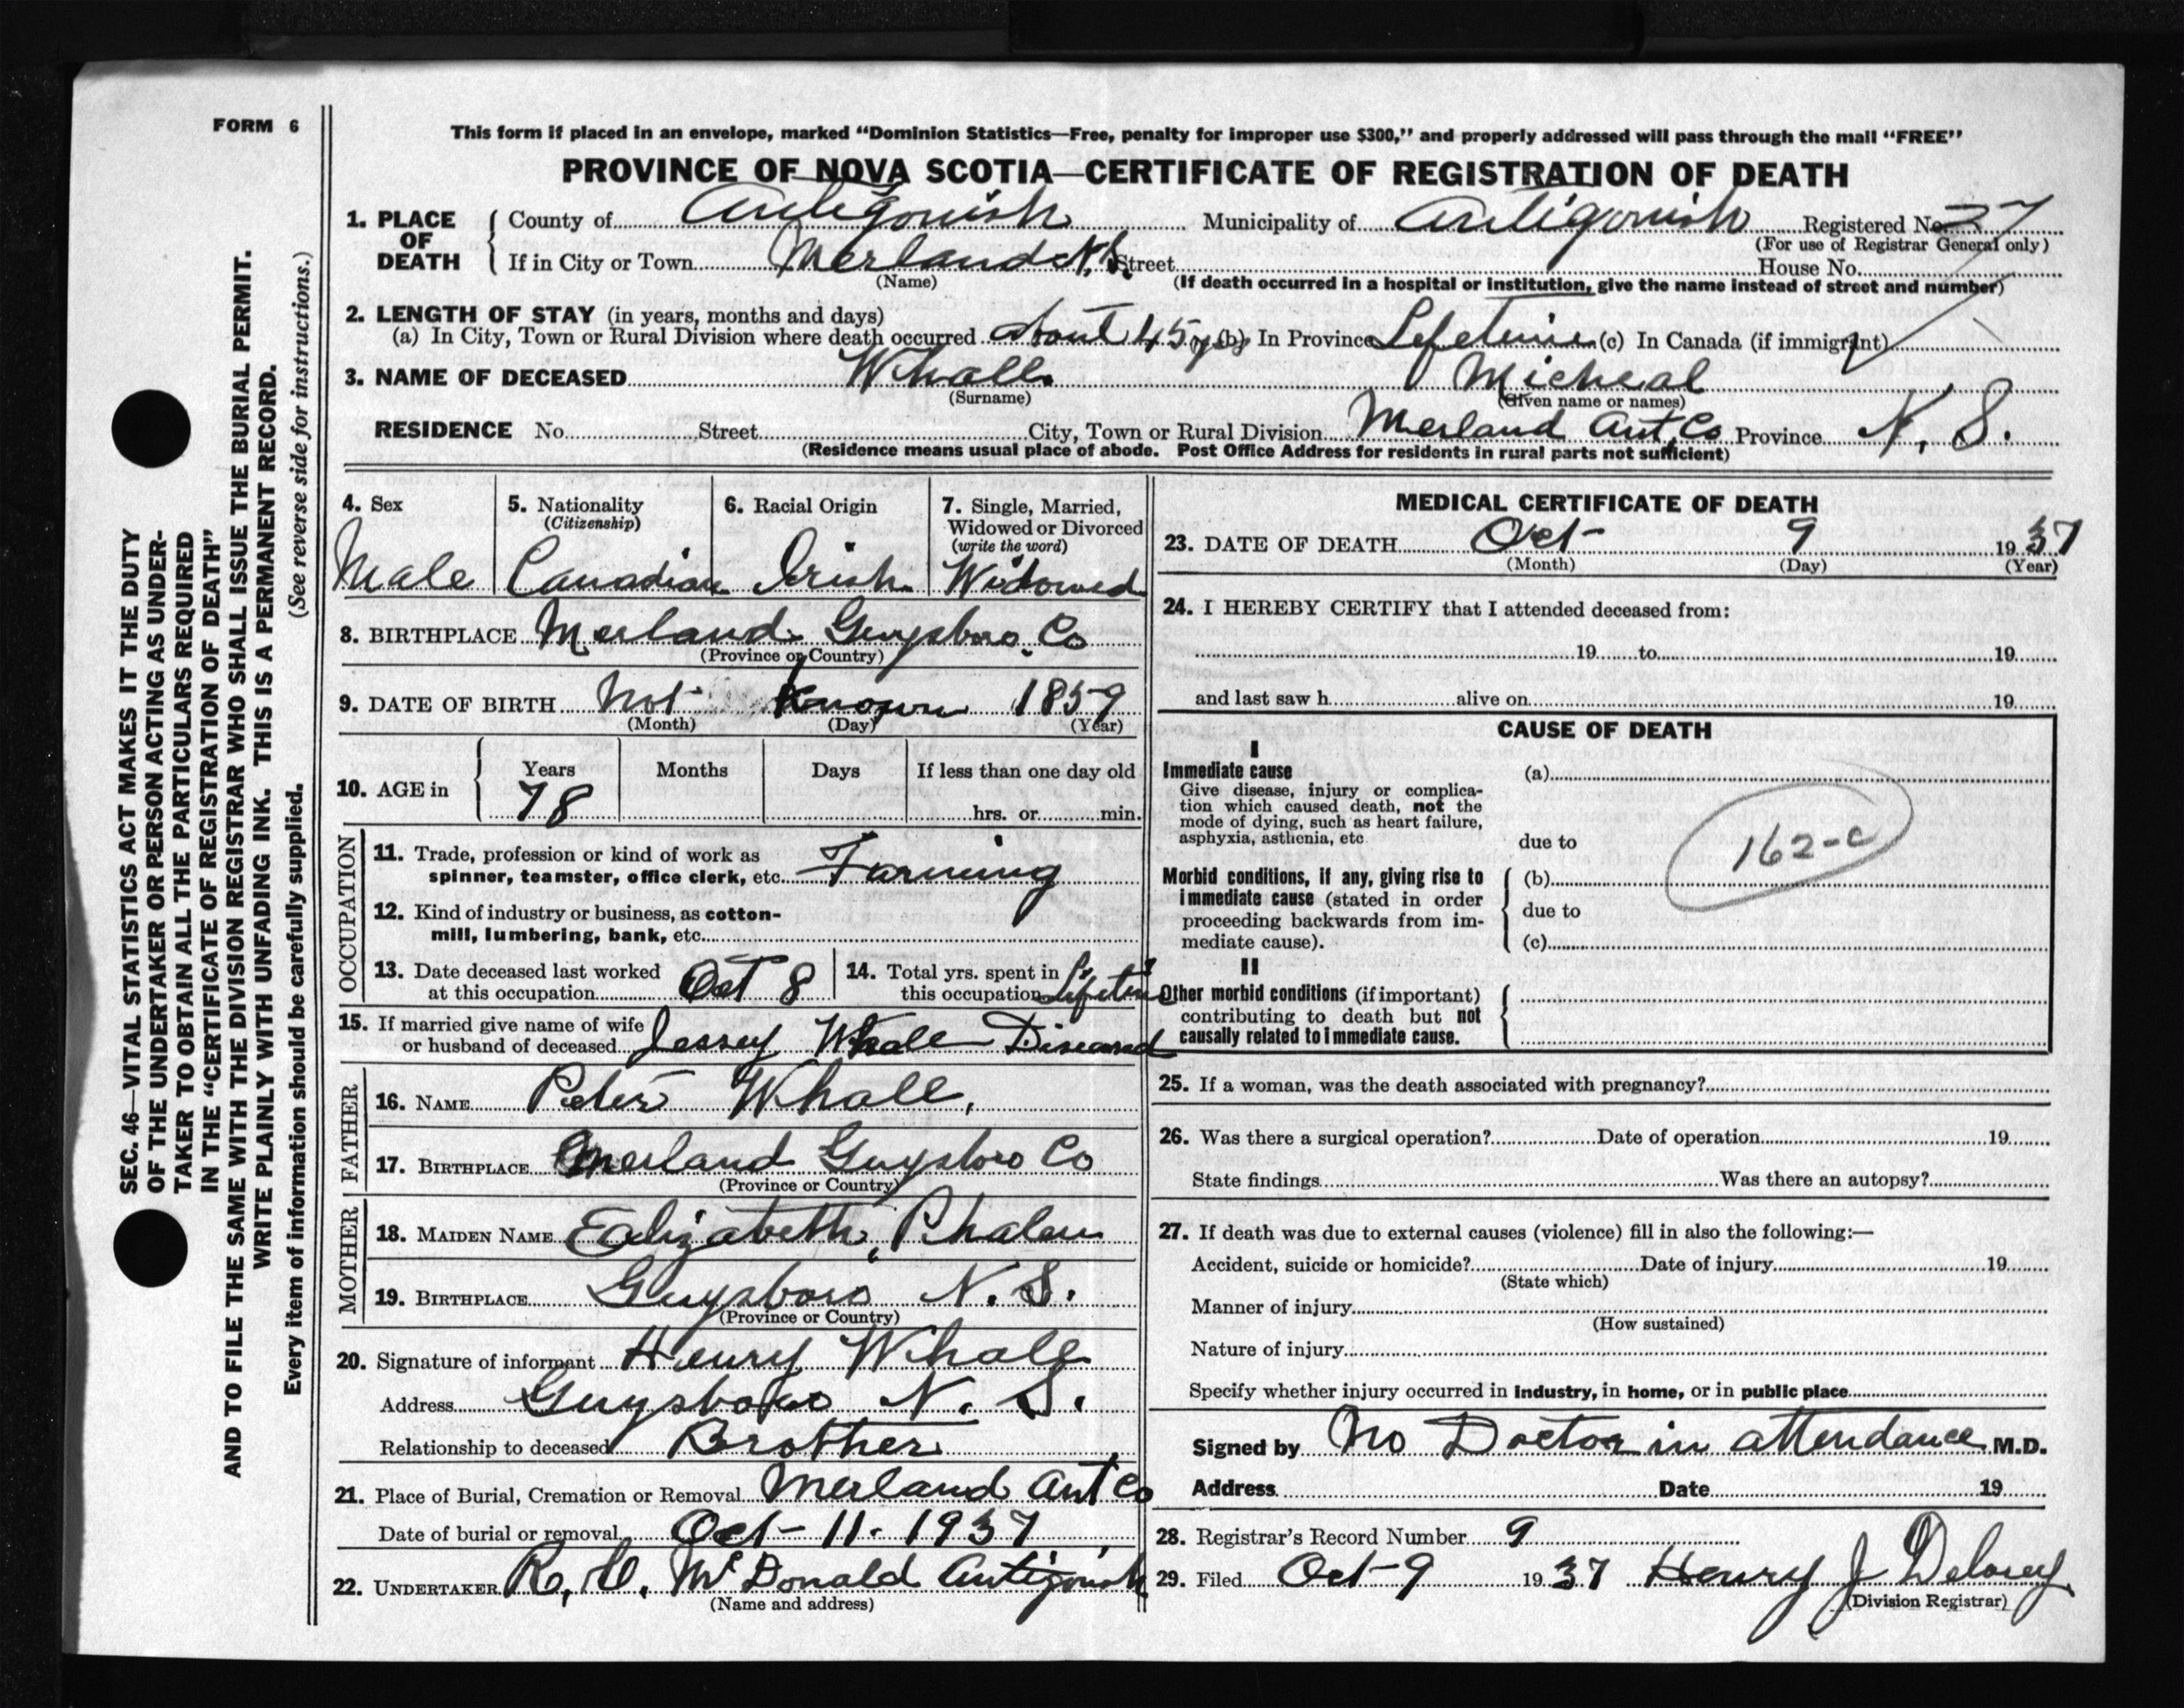 FORM 6
This form if placed in an envelope, marked "Dominion Statistics—Free, penalty for improper use $300," and properly addressed will pass through the mail "FREE"
PROVINCE OF NOVA SCOTIA—CERTIFICATE OF REGISTRATION OF DEATH
1. PLACE OF DEATH County of Antigonish Municipality of Antigonish Registered No. 37
(For use of Registrar General only)
If in City or Town Merland N.S. Street House No.
(Name) (If death occurred in a hospital or institution, give the name instead of street and number)
2. LENGTH OF STAY (in years, months and days)
(a) In City, Town or Rural Division where death occurred about 45 yrs (b) In Province Lifetime (c) In Canada (if immigrant)
3. NAME OF DECEASED Whall Micheal
(Surname) (Given name or names)
RESIDENCE No. Street City, Town or Rural Division Merland Ant. Co Province N. S.
(Residence means usual place of abode. Post Office Address for residents in rural parts not sufficient)
4. Sex 5. Nationality (Citizenship) 6. Racial Origin 7. Single, Married, Widowed or Divorced (write the word)
Male Canadian Irish Widowed
8. BIRTHPLACE Merland Guysboro Co
(Province or Country)
9. DATE OF BIRTH Not Known 1859
(Month) (Day) (Year)
10. AGE in Years Months Days If less than one day old
78 hrs. or min.
OCCUPATION
11. Trade, profession or kind of work as
spinner, teamster, office clerk, etc. Farming
12. Kind of industry or business, as cotton-
mill, lumbering, bank, etc.
13. Date deceased last worked
at this occupation Oct 8
14. Total yrs. spent in
this occupation Lifetime
15. If married give name of wife
or husband of deceased Jessey Whall Diseased
FATHER
16. NAME Peter Whall,
17. BIRTHPLACE Merland Guysboro Co
(Province or Country)
MOTHER
18. MAIDEN NAME Ealizabeth Phalen
19. BIRTHPLACE Guysboro N. S.
(Province or Country)
20. Signature of informant Henry Whall
Address Guysboro N. S.
Relationship to deceased Brother
21. Place of Burial, Cremation or Removal Merland Ant Co
Date of burial or removal Oct - 11 - 1937
22. UNDERTAKER McDonald Antigonish
(Name and address)
MEDICAL CERTIFICATE OF DEATH
23. DATE OF DEATH Oct- 9 1937
(Month) (Day) (Year)
24. I HEREBY CERTIFY that I attended deceased from:
19 to 19
and last saw h alive on 19
CAUSE OF DEATH
I
Immediate cause (a)
Give disease, injury or complica-
tion which caused death, not the
mode of dying, such as heart failure,
asphyxia, asthenia, etc
due to
162-c
Morbid conditions, if any, giving rise to (b)
immediate cause (stated in order
proceeding backwards from im- due to
mediate cause). (c)
II
Other morbid conditions (if important)
contributing to death but not
causally related to immediate cause.
25. If a woman, was the death associated with pregnancy?
26. Was there a surgical operation? Date of operation 19
State findings Was there an autopsy?
27. If death was due to external causes (violence) fill in also the following:—
Accident, suicide or homicide? Date of injury 19
(State which)
Manner of injury
(How sustained)
Nature of injury
Specify whether injury occurred in industry, in home, or in public place
Signed by No Doctor in attendance M.D.
Address Date 19
28. Registrar's Record Number 9
29. Filed Oct-9 1937 Henry J Delorey
(Division Registrar)
SEC. 46—VITAL STATISTICS ACT MAKES IT THE DUTY
OF THE UNDERTAKER OR PERSON ACTING AS UNDER-
TAKER TO OBTAIN ALL THE PARTICULARS REQUIRED
IN THE "CERTIFICATE OF REGISTRATION OF DEATH"
AND TO FILE THE SAME WITH THE DIVISION REGISTRAR WHO SHALL ISSUE THE BURIAL PERMIT.
WRITE PLAINLY WITH UNFADING INK. THIS IS A PERMANENT RECORD.
Every item of information should be carefully supplied. (See reverse side for instructions.)